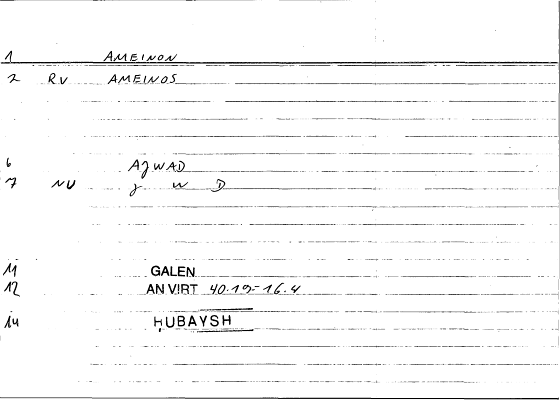 1 AMEINON
2 RV AMEINOS
6 AJWAD
7 NU J W D
11 GALEN
12 AN VIRT 40.19-16.4
14 ḤUBAYSH